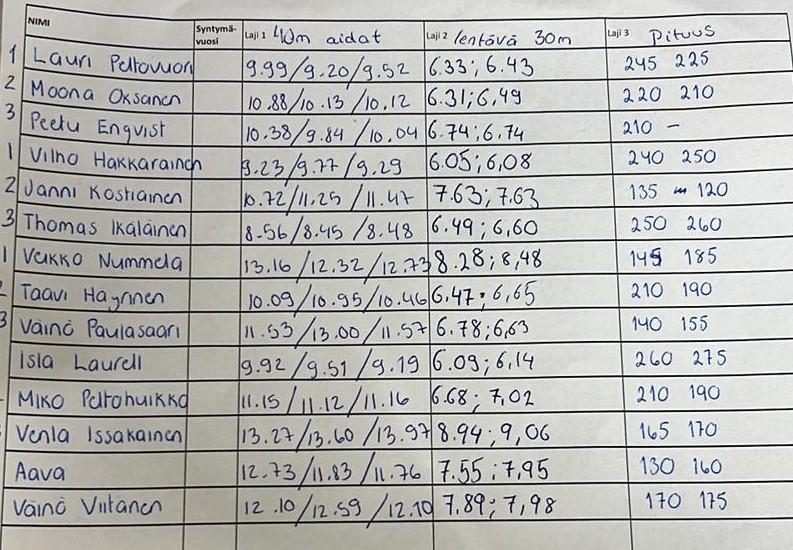 NIMI Syntymä-vuosi Laji 1 40m aidat Laji 2 lentävä 30m Laji 3 Pituus
1 Lauri Peltovuori 9.99/9.20/9.52 6.33; 6.43 245 225
2 Moona Oksanen 10.88/10.13/10.12 6.31; 6,49 220 210
3 Peetu Enqvist 10.38/9.84/10.04 6.74; 6.74 210 -
1 Vilho Hakkarainen 9.23/9.77/9.29 6.05; 6,08 240 250
2 Janni Kostiainen 10.72/11.25/11.47 7.63; 7.63 135 120
3 Thomas Ikäläinen 8.56/8.45/8.48 6.49; 6,60 250 260
1 Veikko Nummela 13.16/12.32/12.73 8.28; 8,48 145 185
2 Taavi Häyrinen 10.09/10.95/10.46 6,47; 6,65 210 190
3 Väinö Paulasaari 11.53/13.00/11.57 6.78; 6,63 140 155
Isla Laurell 9.92/9.51/9.19 6.09; 6,14 260 275
Miko Peltohuikko 11.15/11.12/11.16 6.68; 7,02 210 190
Venla Issakainen 13.27/13.60/13.97 8.94; 9,06 165 170
Aava 12.73/11.83/11.76 7.55; 7,95 130 160
Väinö Viitanen 12.10/12.59/12.10 7,89; 7,98 170 175